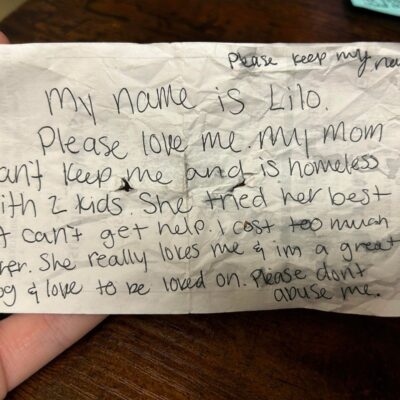 Please keep my na
My name is Lilo.
Please love me. My mom
an't keep me and is homeless
ith 2 kids. She tried her best
t can't get help. I cost too much
er. She really loves me & im a great
og & love to be loved on. Please don't
abuse me.